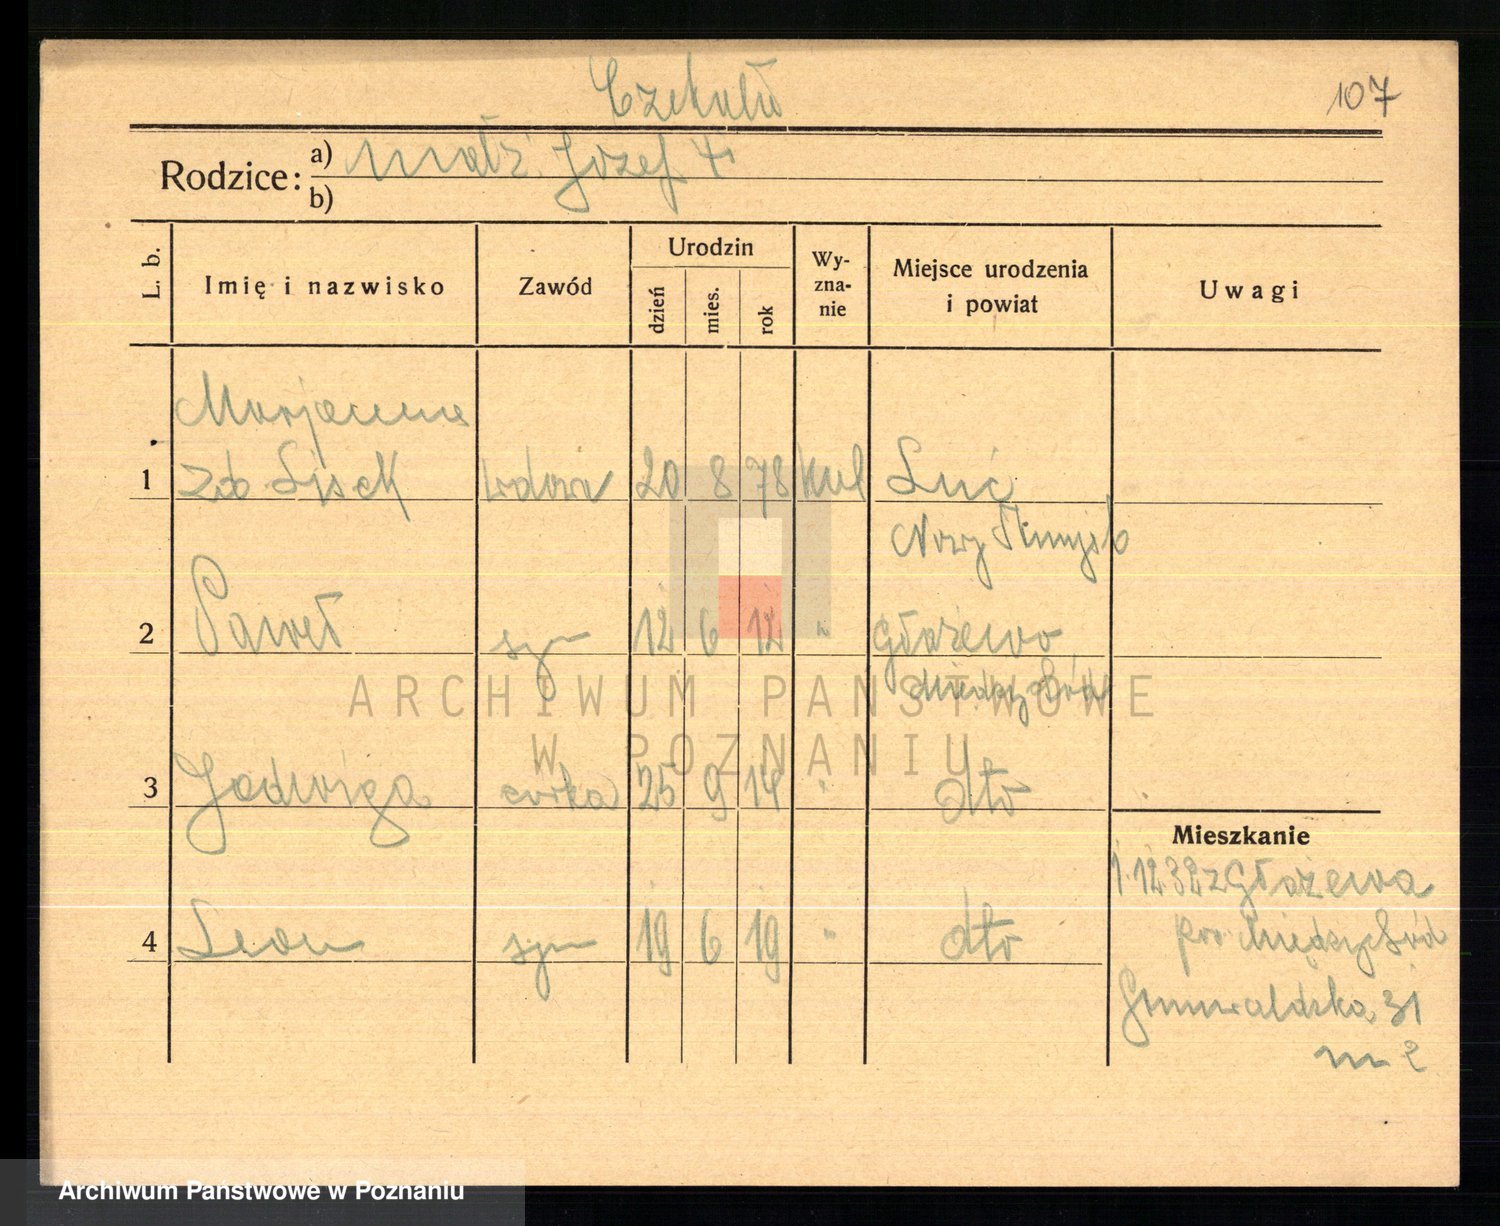 107
Rodzice: a) małż. Józef
b)
L. b. Imię i nazwisko Zawód Urodzin dzień mies. rok Wy-zna-nie Miejsce urodzenia i powiat Uwagi
Marjanna
1 zd Lisek wdowa 20 8 78 kat
Nowy Tomyśl
2 Paweł syn 12 6 12 " Głażewo
Międzychód
3 Jadwiga córka 25 9 14 " dto
Mieszkanie
1.12 32 z Głażewa
pow Międzychód
4 Leon syn 19 6 19 " dto
Grunwaldzka 31
m 2
ARCHIWUM PAŃSTWOWE
W POZNANIU
Archiwum Państwowe w Poznaniu